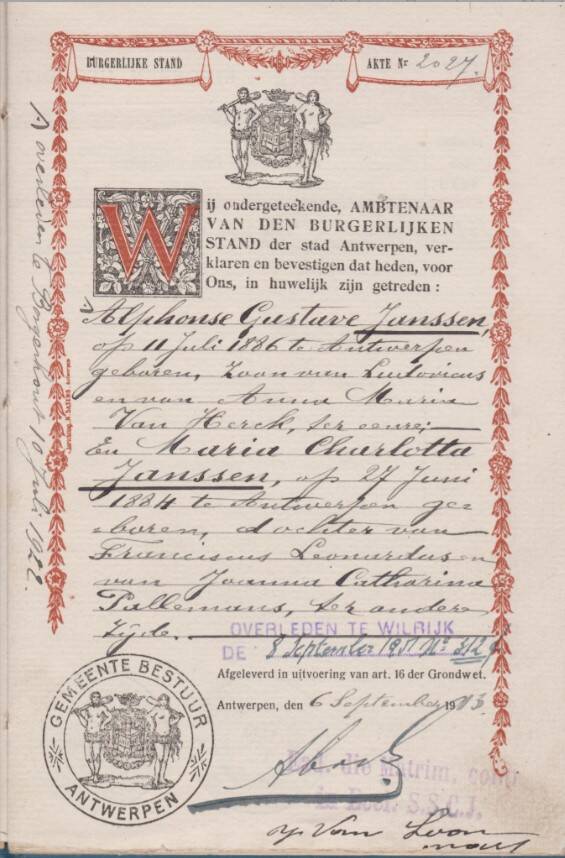 BURGERLIJKE STAND
AKTE Nr 2027.
Wij ondergeteekende, AMBTENAAR
VAN DEN BURGERLIJKEN
STAND der stad Antwerpen, ver-
klaren en bevestigen dat heden, voor
Ons, in huwelijk zijn getreden :
A Alphonse Gustave Janssen,
op 11 Juli 1886 te Antwerpen
geboren, Zoon van Ludovicus
en van Anna Maria
Van Herck, ter eenre;
En Maria Charlotta
Janssen, op 27 Juni
1884 te Antwerpen ge-
boren, dochter van
Franciscus Leonardus en
van Joanna Catharina
Pallemans, ter andere
Zijde.
OVERLEDEN TE WILRIJK
DE 8 September 1951 No 312
Afgeleverd in uitvoering van art. 16 der Grondwet.
Antwerpen, den 6 September 1913.
GEMEENTE BESTUUR
ANTWERPEN
Ead. die Matrim. contr
in Eccl. S.S.C.J.
A overleden te Borgerhout 10 Juli 1922.